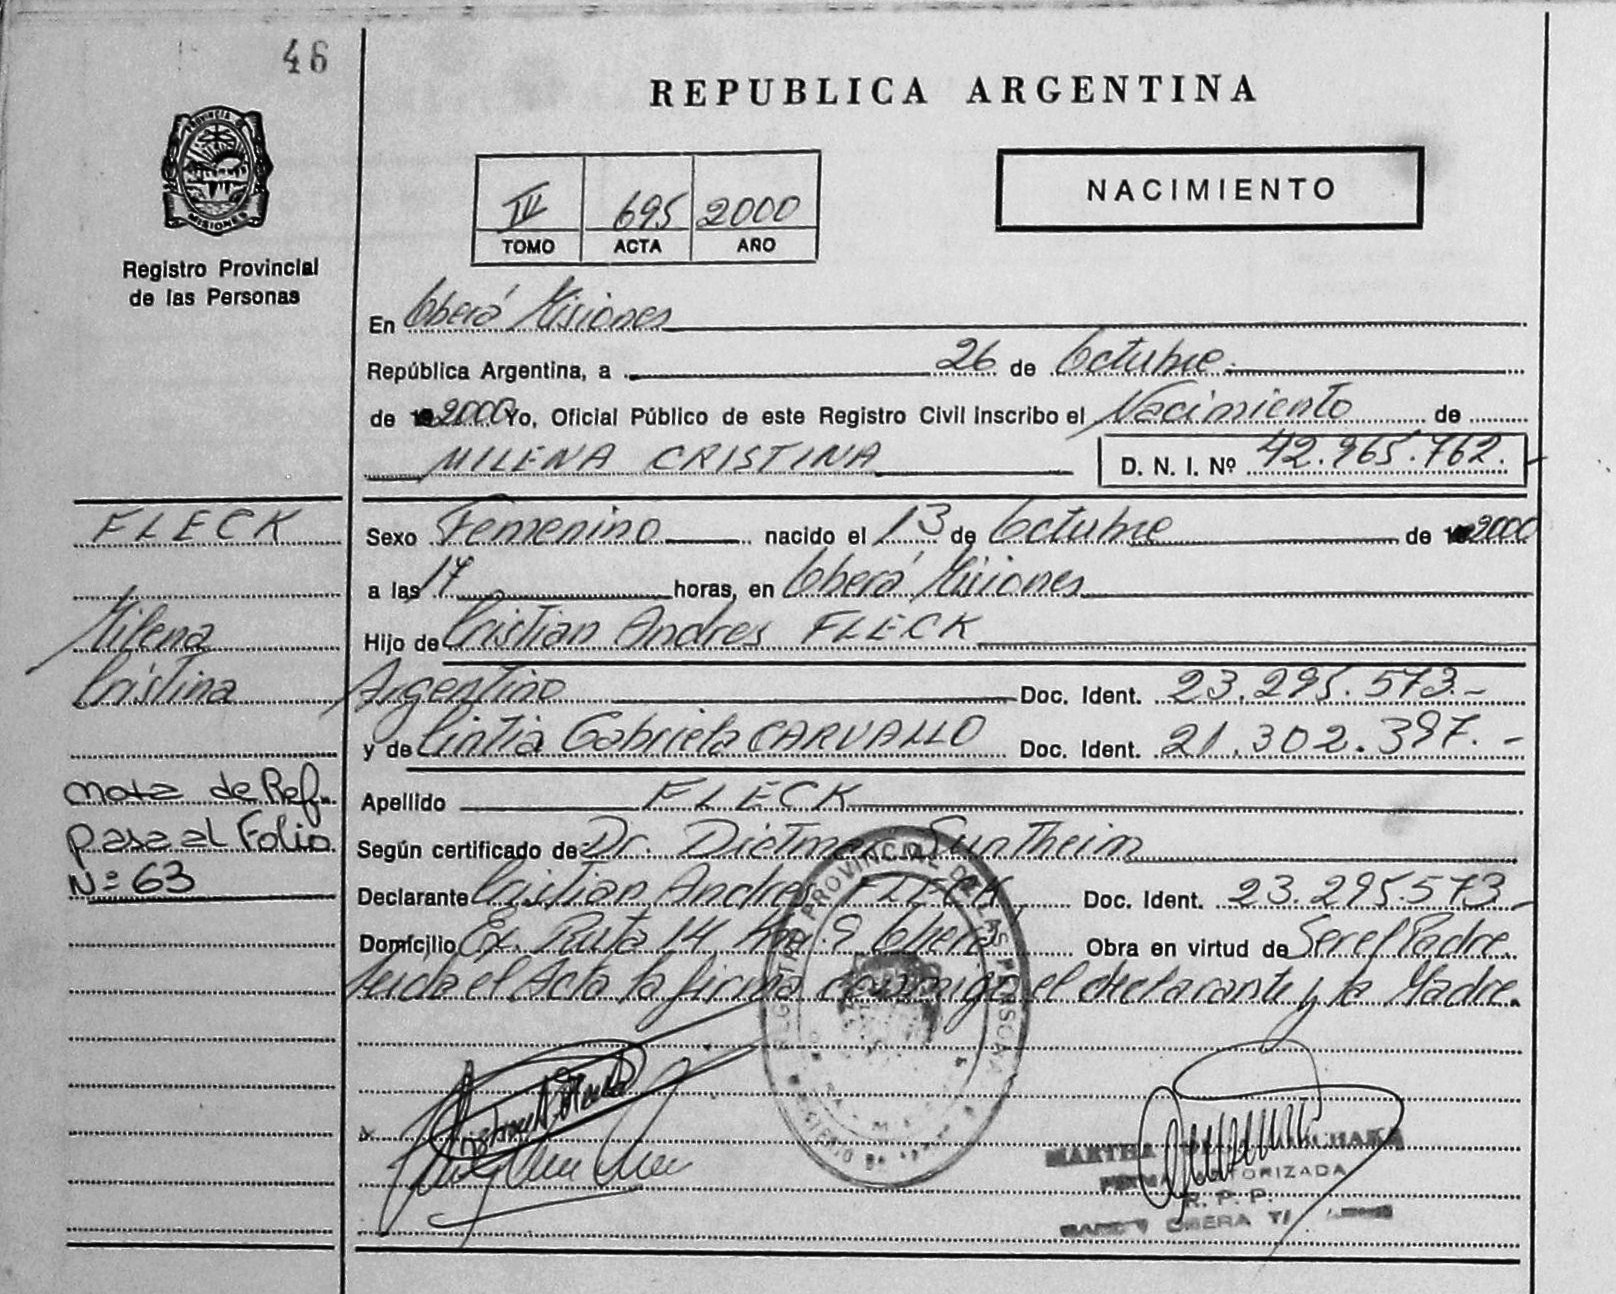 46
REPUBLICA ARGENTINA
PROVINCIA DE
MISIONES
Registro Provincial
de las Personas
695 2000
TOMO ACTA AÑO
NACIMIENTO
En Oberá Misiones
República Argentina, a 26 de Octubre.
de 2000 Yo, Oficial Público de este Registro Civil inscribo el Nacimiento de
MILENA CRISTINA D. N. I. Nº 42.965.762.
FLECK
Sexo Femenino nacido el 13 de Octubre de 2000
a las 17 horas, en Oberá Misiones
Milena
Hijo de Cristian Andres FLECK
Cristina
Argentino Doc. Ident. 23.295.573.-
y de Cintia Gabriela CARVALLO Doc. Ident. 21.302.397.-
Nota de Ref.
Apellido FLECK
pasa al Folio
Según certificado de Dr. Dietmar Suntheim
Nº 63
Declarante Cristian Andres FLECK Doc. Ident. 23.295.573-
Domicilio Ex. Ruta 14 Km. 9 Oberá Obra en virtud de Ser el Padre.
Leida el Acta la firma conmigo el declarante y la Madre.
REGISTRO PROVINCIAL DE LAS PERSONAS
MARTHA
AUTORIZADA
R. P. P.
OBERA